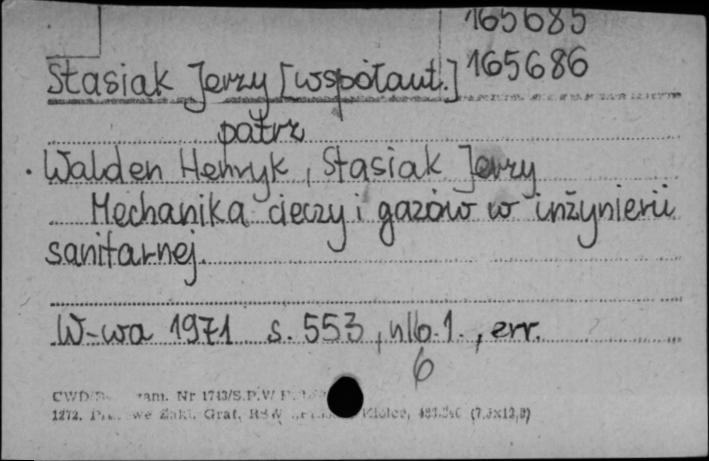 165685
Stasiak Jerzy [współaut.] 165686
patrz
Walden Henryk, Stasiak Jerzy
Mechanika cieczy i gazów w inżynierii
sanitarnej.
W-wa 1971 s. 553, nlb. 1., err.
6
CWD Nr 1713/S.P.V/
1272. Zakł. Graf. RSW Kielce, (7,5x12,5)